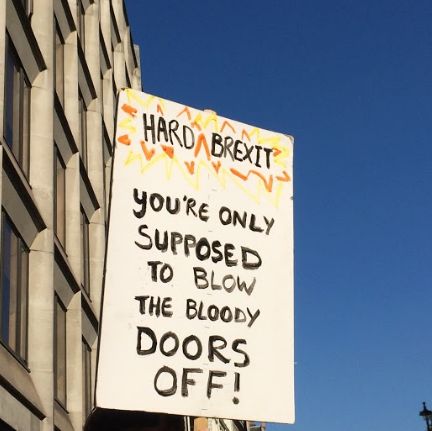 HARD BREXIT
YOU'RE ONLY
SUPPOSED
TO BLOW
THE BLOODY
DOORS
OFF!